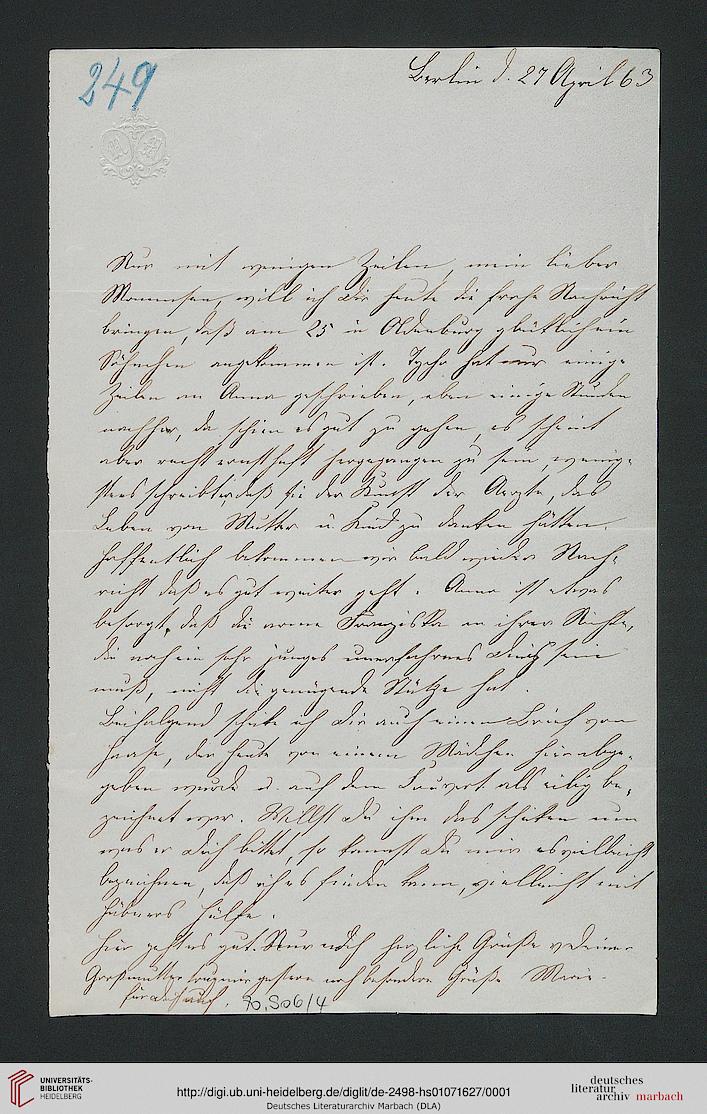 249
Berlin d. 27 April 63
Nur mit wenigen Zeilen, mein lieber
Mommsen, will ich Dir heute die frohe Nachricht
bringen, daß am 25 in Oldenburg glücklich ein
Söhnchen angekommen ist. Tycho hat nur einige
Zeilen an Anna geschrieben, eben einige Stunden
nachher, da schien es gut zu gehen, es scheint
aber recht ernsthaft hergegangen zu sein, wenig-
stens schreibt er, daß sie der Kunst der Aerzte, das
Leben von Mutter u. Kind zu danken hätten.
Hoffentlich bekommen wir bald wieder Nach-
richt daß es gut weiter geht. Anna ist etwas
besorgt, daß die arme Franziska an ihrer Nichte,
die noch ein sehr junges unerfahrnes Ding sein
muß, nicht die genügende Stütze hat.
Beifolgend schicke ich Dir auch einen Brief von
Haase, der heute von einem Mädchen hier abge-
geben wurde u. auf dem Couvert als eilig be-
zeichnet war. Willst Du ihm das schicken um
was er Dich bittet, so kannst Du mir es vielleicht
bezeichnen, daß ich es finden kann, vielleicht mit
Hübners Hülfe.
Hier geht es gut. Nur noch herzliche Grüße v Deiner
Großmutter trug mir gestern noch besondere Grüße Marie.
für Dich auf.
90.S06/4
UNIVERSITÄTS-
BIBLIOTHEK
HEIDELBERG
http://digi.ub.uni-heidelberg.de/diglit/de-2498-hs01071627/0001
Deutsches Literaturarchiv Marbach (DLA)
deutsches
literatur
archiv marbach